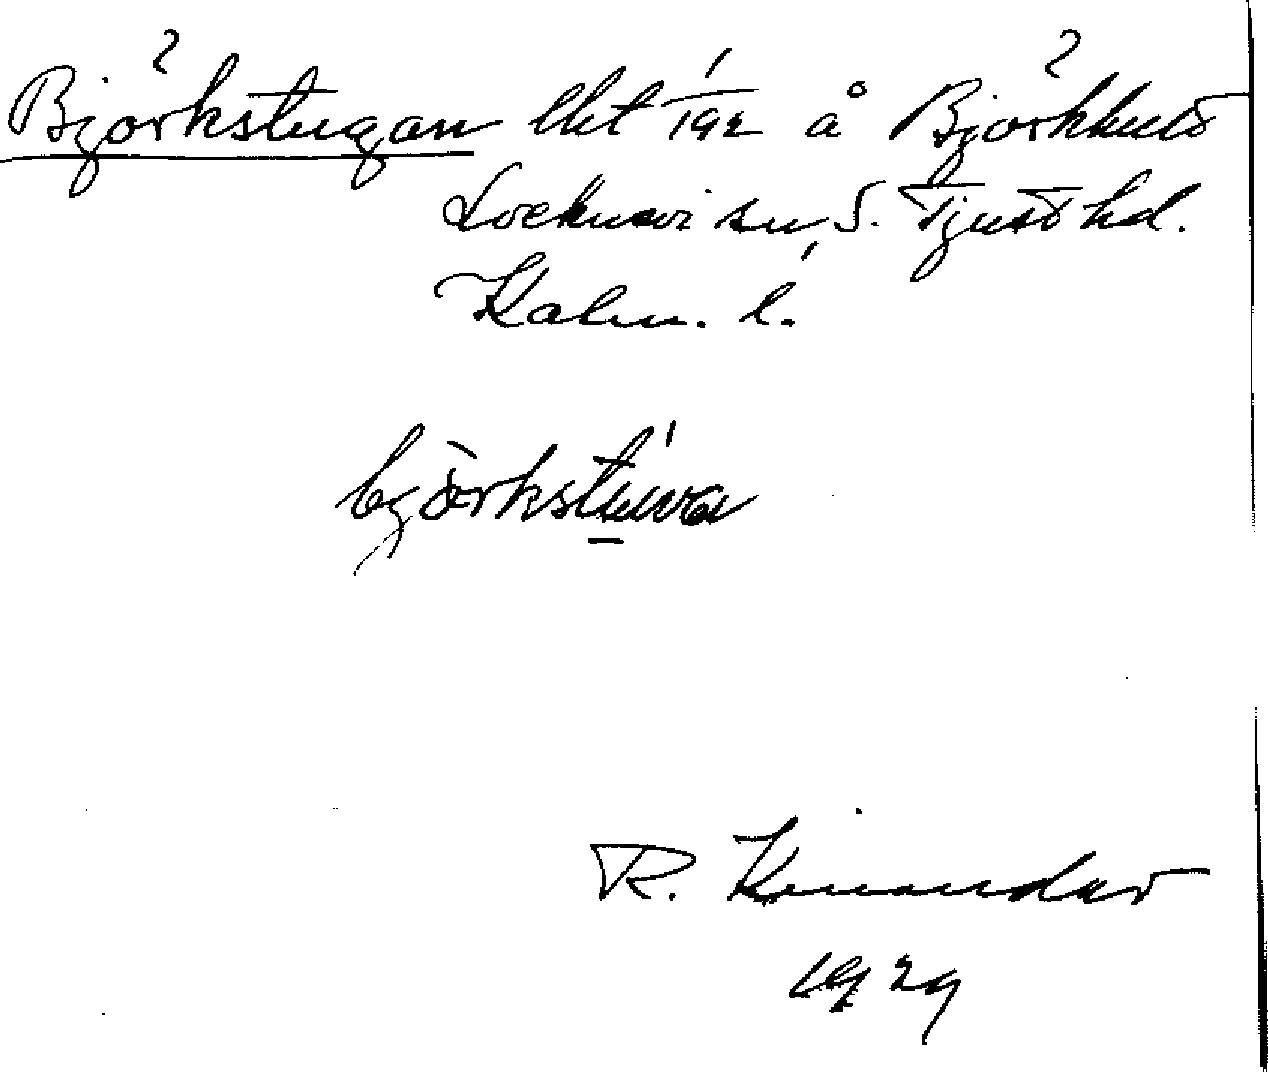 Björkstugan lht 1/192 å Björkhult
Locknevi sn, S. Tjust hd.
Kalm. l.
björkstúva
R. Kinander
1929